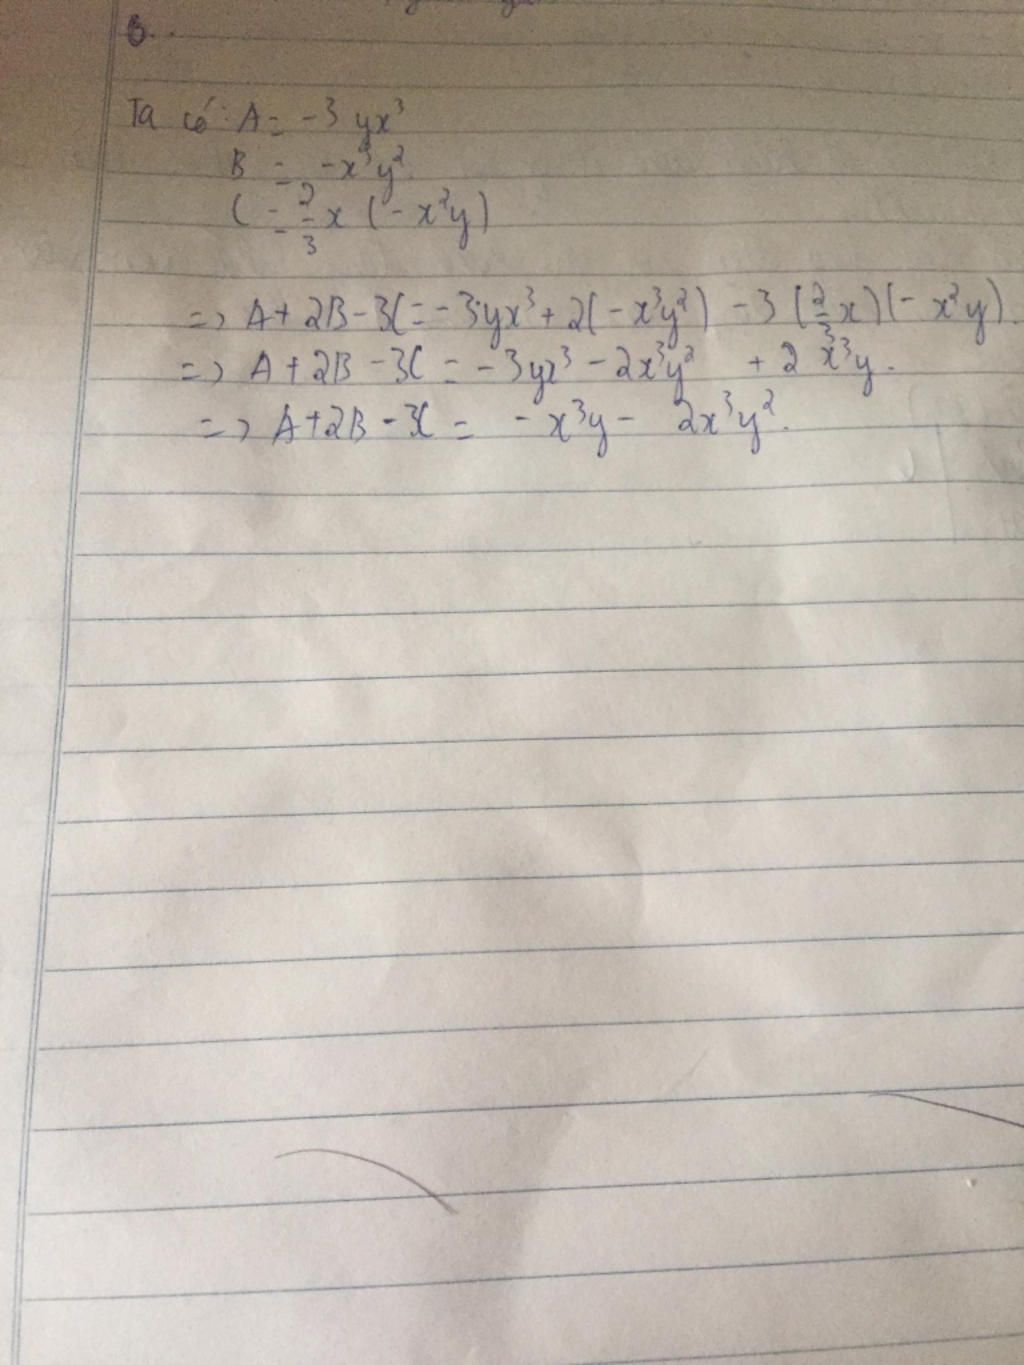 6.
Ta có: A = -3 yx³
B = -x³y²
C = 2/3 x (-x²y)
=> A + 2B - 3C = -3yx³ + 2(-x³y²) - 3(2/3 x)(-x²y)
=> A + 2B - 3C = -3yx³ - 2x³y² + 2x³y.
=> A + 2B - 3C = -x³y - 2x³y².